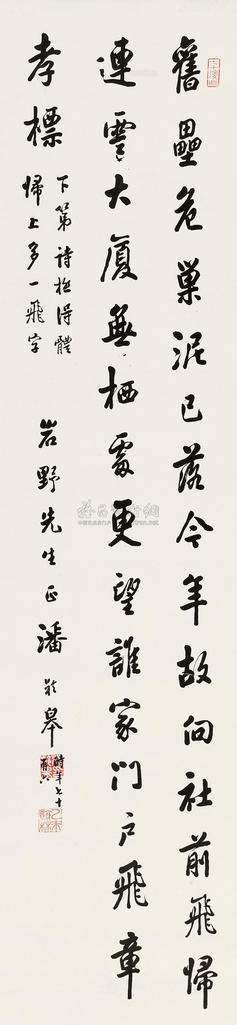 舊壘危巢泥已落今年故向社前飛歸
連雲大廈無栖處更望誰家門戶飛章
孝標
下第詩極得體
歸上多一飛字
岩野先生正 潘齡皋
時年七十
有六